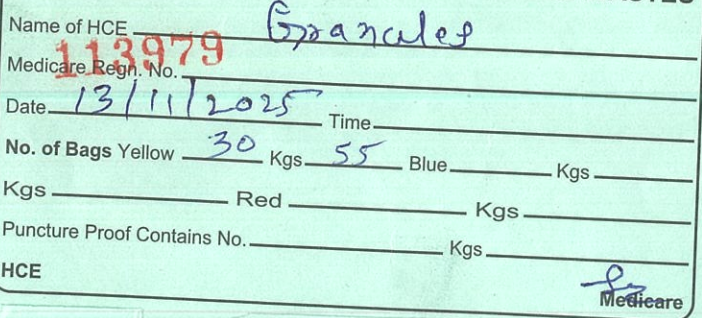 Name of HCE Granules
113979
Medicare Regn. No.
Date 13/11/2025 Time
No. of Bags Yellow 30 Kgs 55 Blue Kgs
Kgs Red Kgs
Puncture Proof Contains No. Kgs
HCE
Medicare